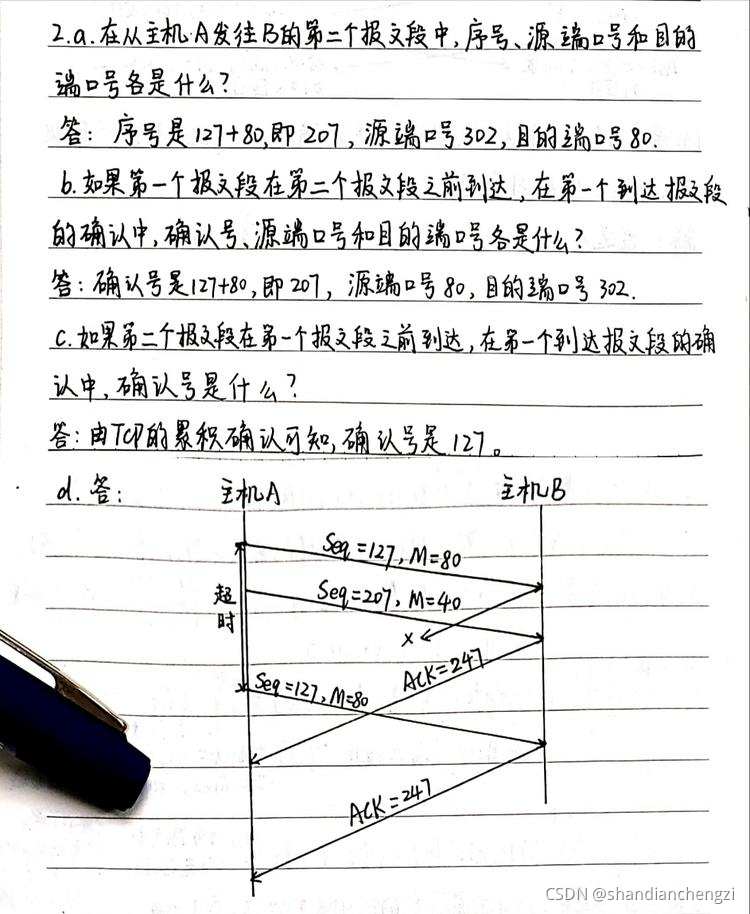 2.a.在从主机A发往B的第二个报文段中,序号、源端口号和目的
端口号各是什么?
答: 序号是127+80,即207,源端口号302,目的端口号80.
b.如果第一个报文段在第二个报文段之前到达,在第一个到达报文段
的确认中,确认号、源端口号和目的端口号各是什么?
答:确认号是127+80,即207, 源端口号80,目的端口号302.
c.如果第二个报文段在第一个报文段之前到达,在第一个到达报文段的确
认中,确认号是什么?
答:由TCP的累积确认可知,确认号是127。
d.答: 主机A 主机B
Seq=127,M=80
超时
Seq=207,M=40
x
ACK=247
Seq=127,M=80
ACK=247
CSDN @shandianchengzi